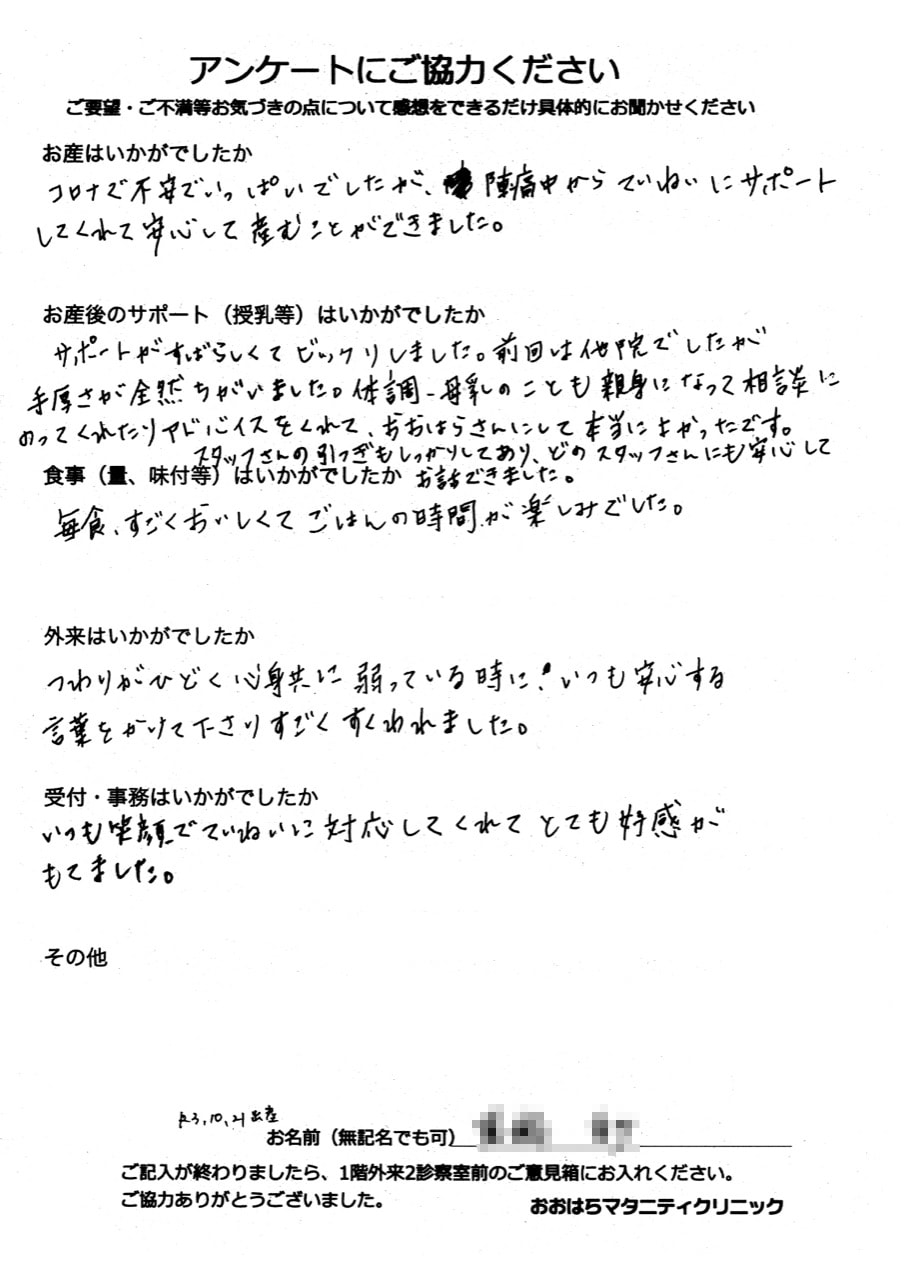 アンケートにご協力ください
ご要望・ご不満等お気づきの点について感想をできるだけ具体的にお聞かせください
お産はいかがでしたか
コロナで不安でいっぱいでしたが、陣痛中からていねいにサポート
してくれて安心して産むことができました。
お産後のサポート（授乳等）はいかがでしたか
サポートがすばらしくてビックリしました。前回は他院でしたが
手厚さが全然ちがいました。体調、母乳のことも親身になって相談に
のってくれたりアドバイスをくれて、おおはらさんにして本当によかったです。
スタッフさんの引つぎもしっかりしてあり、どのスタッフさんにも安心して
食事（量、味付等）はいかがでしたか お話できました。
毎食、すごくおいしくてごはんの時間が楽しみでした。
外来はいかがでしたか
つわりがひどく心身共に弱っている時に、いつも安心する
言葉をかけて下さりすごくすくわれました。
受付・事務はいかがでしたか
いつも笑顔でていねいに対応してくれてとても好感が
もてました。
その他
R3,10,21出産
お名前（無記名でも可）
ご記入が終わりましたら、1階外来2診察室前のご意見箱にお入れください。
ご協力ありがとうございました。
おおはらマタニティクリニック